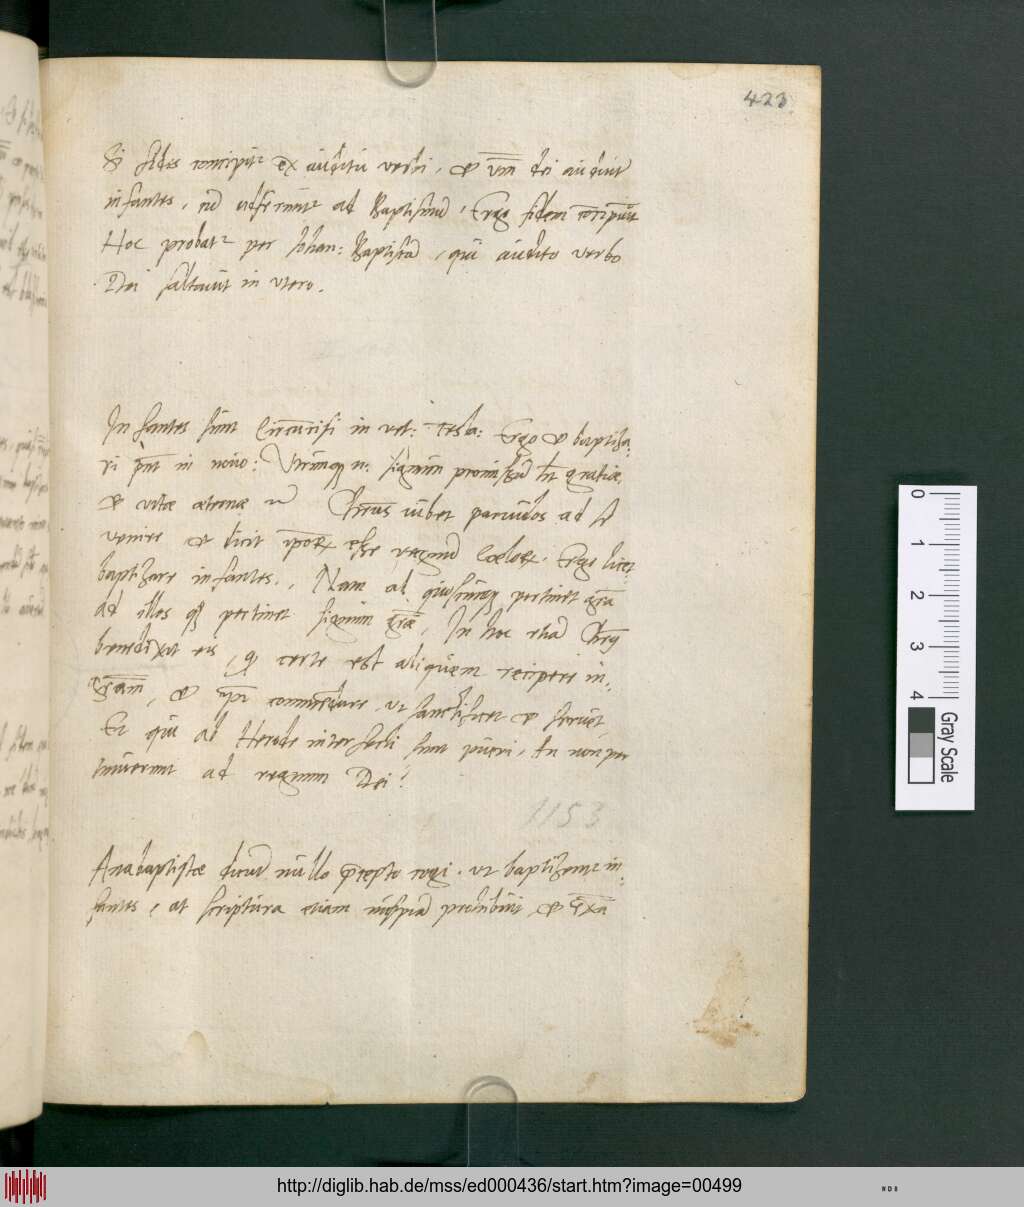 423
Si fides concipit᷑ ex auditu verbi, et v̅m dei audiu̅t
infantes, cu̅ adferunt᷑ ad Baptismu̅, Ergo fidem co̅cipiu̅t
Hoc probat᷑ per Johan: Baptista̅, qui audito verbo
Dei saltauit in vtero.
Infantes sunt Circu̅cisi in vet: testa: Ergo et baptiza-
ri in nouo: Vtrinq̨ n: signum
et vitæ æternæ Chr̅us iubet paruulos ad se
venire et dicit ip̅or̨ esse regnu̅ Coelor̨. Ergo licet
baptizare infantes. Nam ad quoscunq̨ pertinet gr̅a
ad illos q̨ pertinet signum gr̅æ, In hoc etia̅ Chr̅9
benedixit eis, q̨ certe est aliquem recipere in
gr̅am, et commendare, ut sanctificet et seruet,
Et qui ab Herode interfecti sunt pueri, An non per
tinuerunt ad regnum Dei?
1153
Anabaptistæ dicu̅t nullo p̅cepto cogi, ut baptizent᷑ in-
fantes, at scriptura etiam nusqua̅ prohibuit, et
0 1 2 3 4
Gray Scale
http://diglib.hab.de/mss/ed000436/start.htm?image=00499